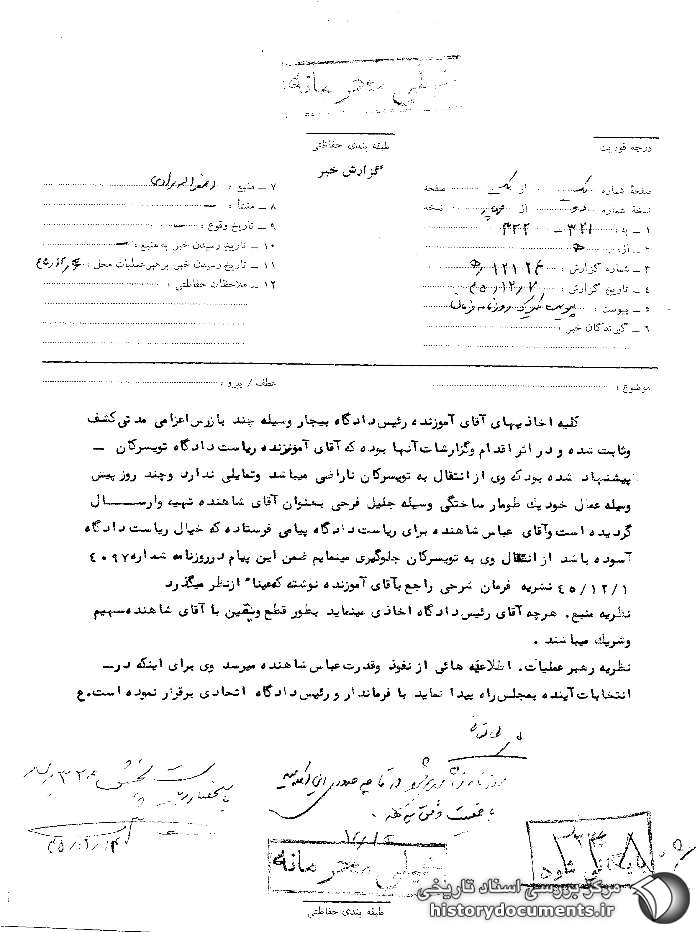 خیلی محرمانه
طبقه بندی حفاظتی
درجه فوریت
گزارش خبر
صفحهٔ شماره یک از یک صفحه
نسخهٔ شماره دو از نسخه
۱ ـ به : ۳۲۱ ـ ۳۲۲
۲ ـ از :
۳ ـ شماره گزارش : ۱۲۱۲۶/ﻫ
۴ ـ تاریخ گزارش : ۴۵/۱۲/۷
۵ ـ پیوست : روزنامه فرمان
۶ ـ گیرندگان خبر :
۷ ـ منبع :
۸ ـ منشأ : ـ
۹ ـ تاریخ وقوع : ـ
۱۰ ـ تاریخ رسیدن خبر به منبع : ـ
۱۱ ـ تاریخ رسیدن خبر برهبر عملیات محل :
۱۲ ـ ملاحظات حفاظتی :
موضوع :
عطف / پیرو :
کلیه اخاذیهای آقای آموزنده رئیس دادگاه بیجار وسیله چند بازرس اعزامی مدتی کشف
وثابت شده و در اثر اقدام وگزارشات آنها بوده که آقای آموزنده ریاست دادگاه تویسرکان ـ
پیشنهاد شده بود که وی از انتقال به تویسرکان ناراضی میباشد وتمایلی ندارد وچند روز پیش
وسیله عمال خود یك طومار ساختگی وسیله جلیل فرحی بعنوان آقای شاهنده تهیه وارســال
گردیده است وآقای عباس شاهنده برای ریاست دادگاه پیامی فرستاده که خیال ریاست دادگاه
آسوده باشد از انتقال وی به تویسرکان جلوگیری مینمایم ضمن این پیام در روزنامه شماره ۴۰۹۷
۴۵/۱۲/۱ نشریه فرمان شرحی راجع بآقای آموزنده نوشته که عیناً ازنظر میگذرد
نظریه منبع. هرچه آقای رئیس دادگاه اخاذی مینماید بطور قطع ویقین با آقای شاهنده سهیم
وشریك میباشند .
نظریه رهبر عملیات. اطلاعیه هائی از نفوذ وقدرت عباس شاهنده میرسد وی برای اینکه درـ
انتخابات آینده بمجلس راه پیدا نماید با فرماندار و رئیس دادگاه اتحادی برقرار نموده است.ع
خیلی محرمانه
طبقه بندی حفاظتی
بایگانی شود
مرکز بررسی اسناد تاریخی
historydocuments.ir